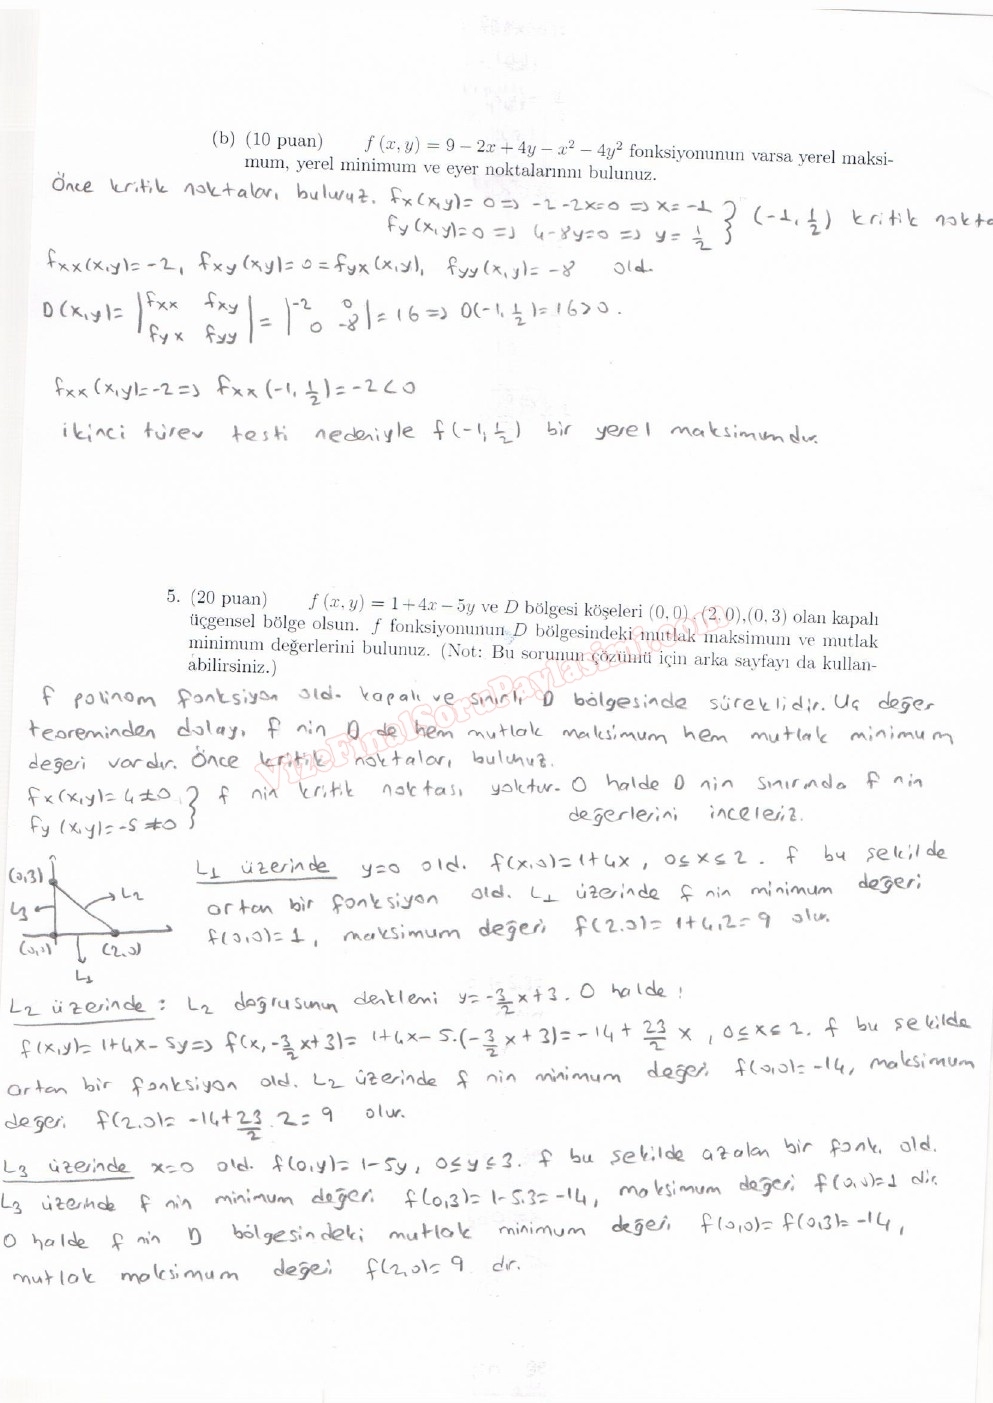 (b) (10 puan) f (x, y) = 9 − 2x + 4y − x² − 4y² fonksiyonunun varsa yerel maksi-
mum, yerel minimum ve eyer noktalarını bulunuz.
Önce kritik noktaları buluruz. fx(x,y)=0 => -2-2x=0 => x=-1
fy(x,y)=0 => 4-8y=0 => y=1/2 } (-1, 1/2) kritik nokta
fxx(x,y)=-2, fxy(x,y)=0=fyx(x,y), fyy(x,y)=-8 old.
D(x,y)= |fxx fxy| = |-2 0| = 16 => D(-1, 1/2)=16>0.
|fyx fyy| |0 -8|
fxx(x,y)=-2 => fxx(-1, 1/2)=-2<0
ikinci türev testi nedeniyle f(-1, 1/2) bir yerel maksimumdur.
5. (20 puan) f (x, y) = 1+4x−5y ve D bölgesi köşeleri (0,0), (2,0),(0,3) olan kapalı
üçgensel bölge olsun. f fonksiyonunun D bölgesindeki mutlak maksimum ve mutlak
minimum değerlerini bulunuz. (Not: Bu sorunun çözümü için arka sayfayı da kullan-
abilirsiniz.)
VizeFinalSoruPaylasimi.com
f polinom fonksiyon old. kapalı ve sınırlı D bölgesinde süreklidir. Uç değer
teoreminden dolayı f nin D de hem mutlak maksimum hem mutlak minimum
değeri vardır. Önce kritik noktaları buluruz.
fx(x,y)=4≠0 } f nin kritik noktası yoktur. O halde D nin sınırında f nin
fy(x,y)=-5≠0 değerlerini inceleriz.
L1 üzerinde y=0 old. f(x,0)=1+4x, 0≤x≤2. f bu şekilde
artan bir fonksiyon old. L1 üzerinde f nin minimum değeri
f(0,0)=1, maksimum değeri f(2,0)=1+4.2=9 olur.
(0,3)
L2
L3
(0,0) (2,0)
L1
L2 üzerinde: L2 doğrusunun denklemi y=-3/2x+3. O halde:
f(x,y)=1+4x-5y => f(x,-3/2x+3)= 1+4x-5.(-3/2x+3)=-14+23/2 x, 0≤x≤2. f bu şekilde
artan bir fonksiyon old. L2 üzerinde f nin minimum değeri f(0,0)=-14, maksimum
değeri f(2,0)= -14+23/2.2=9 olur.
L3 üzerinde x=0 old. f(0,y)=1-5y, 0≤y≤3. f bu şekilde azalan bir fonk. old.
L3 üzerinde f nin minimum değeri f(0,3)=1-5.3=-14, maksimum değeri f(0,0)=1 dir.
O halde f nin D bölgesindeki mutlak minimum değeri f(0,0)=f(0,3)=-14,
mutlak maksimum değeri f(2,0)=9 dır.